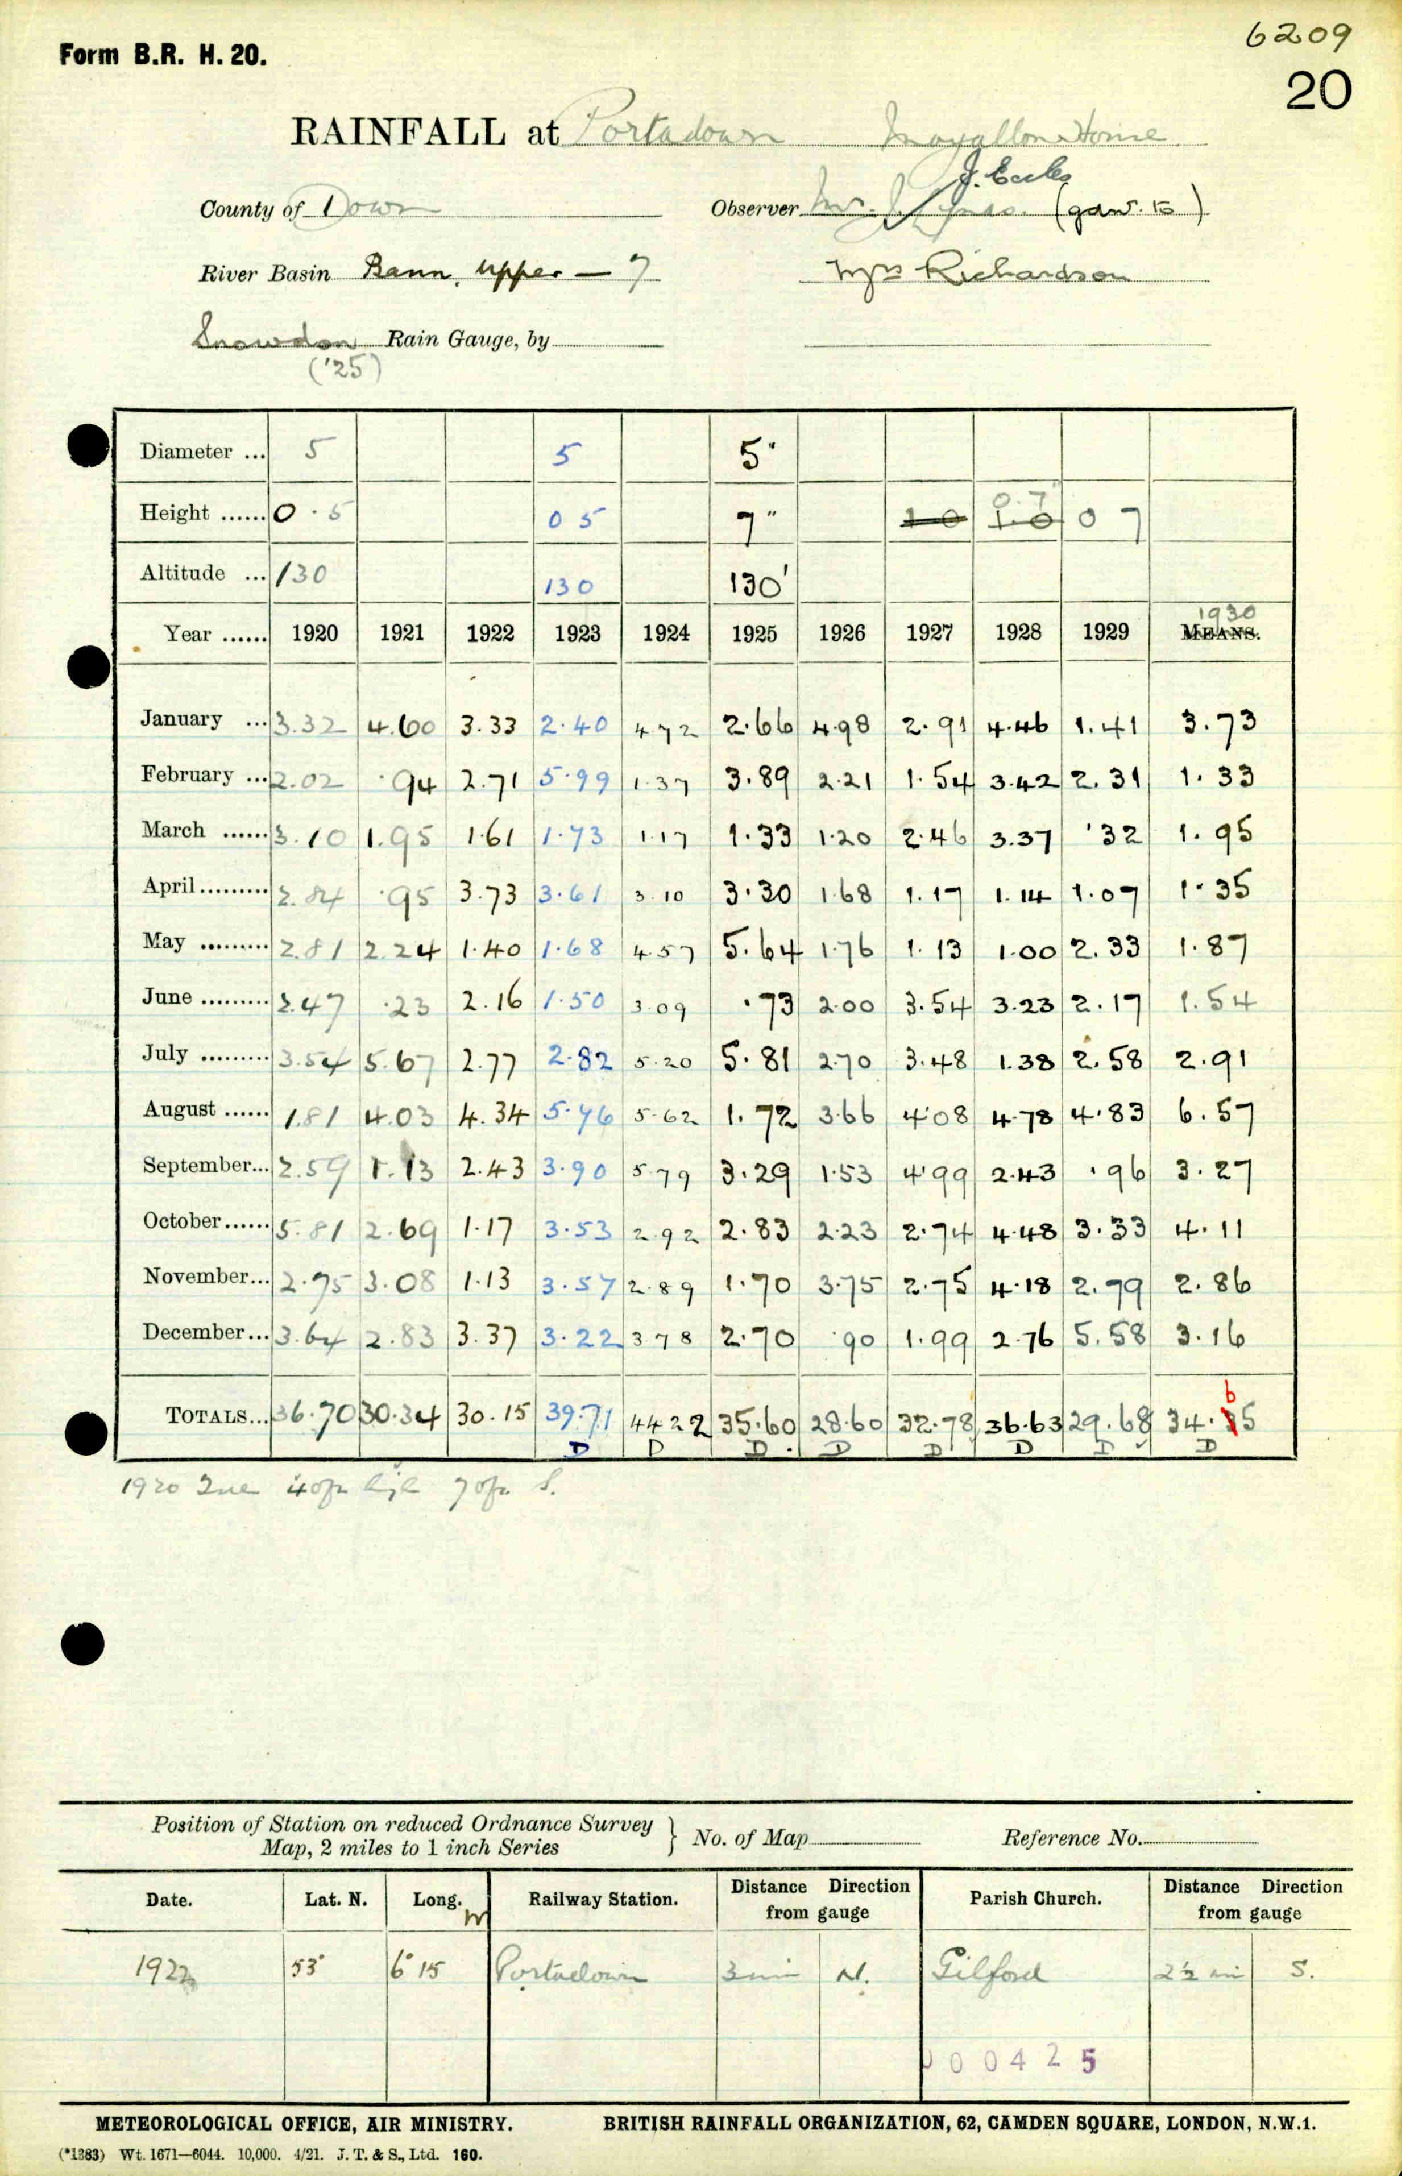 6209
Form B.R. H. 20.
20
RAINFALL at Portadown Moyallon House
J. Eccles
County of Down Observer Mr. J. (gdnr. to)
River Basin Bann, Upper — 7 Mrs Richardson
Snowdon Rain Gauge, by
('25)
Diameter ... 5 5 5"
0.7"
Height ...... 0.5 0 5 7" 1 0 1.0 0 7
Altitude ... 130 130 130'
1930
Year ...... 1920 1921 1922 1923 1924 1925 1926 1927 1928 1929 MEANS.
January ... 3.32 4.60 3.33 2.40 4.72 2.66 4.98 2.91 4.46 1.41 3.73
February ... 2.02 .94 2.71 5.99 1.37 3.89 2.21 1.54 3.42 2.31 1.33
March ...... 3.10 1.95 1.61 1.73 1.17 1.33 1.20 2.46 3.37 .32 1.95
April ......... 2.84 .95 3.73 3.61 3.10 3.30 1.68 1.17 1.14 1.07 1.35
May ......... 2.81 2.24 1.40 1.68 4.57 5.64 1.76 1.13 1.00 2.33 1.87
June ......... 2.47 .23 2.16 1.50 3.09 .73 2.00 3.54 3.23 2.17 1.54
July ......... 3.54 5.67 2.77 2.82 5.20 5.81 2.70 3.48 1.38 2.58 2.91
August ...... 1.81 4.03 4.34 5.76 5.62 1.72 3.66 4.08 4.78 4.83 6.57
September... 2.59 1.13 2.43 3.90 5.79 3.29 1.53 4.99 2.43 .96 3.27
October ...... 5.81 2.69 1.17 3.53 2.92 2.83 2.23 2.74 4.48 3.33 4.11
November... 2.75 3.08 1.13 3.57 2.89 1.70 3.75 2.75 4.18 2.79 2.86
December... 3.64 2.83 3.37 3.22 3.78 2.70 .90 1.99 2.76 5.58 3.16
6
TOTALS... 36.70 30.34 30.15 39.71 44.22 35.60 28.60 32.78 36.63 29.68 34.35
D D D. D D D D D
1920 40ft 70ft S.
Position of Station on reduced Ordnance Survey
Map, 2 miles to 1 inch Series } No. of Map Reference No.
Date. Lat. N. Long. W Railway Station. Distance Direction from gauge Parish Church. Distance Direction from gauge
1922 53° 6° 15 Portadown 3 mi N. Gilford 2½ mi S.
000425
METEOROLOGICAL OFFICE, AIR MINISTRY. BRITISH RAINFALL ORGANIZATION, 62, CAMDEN SQUARE, LONDON, N.W.1.
(*1383) Wt. 1671—6044. 10,000. 4/21. J. T. & S., Ltd. 160.